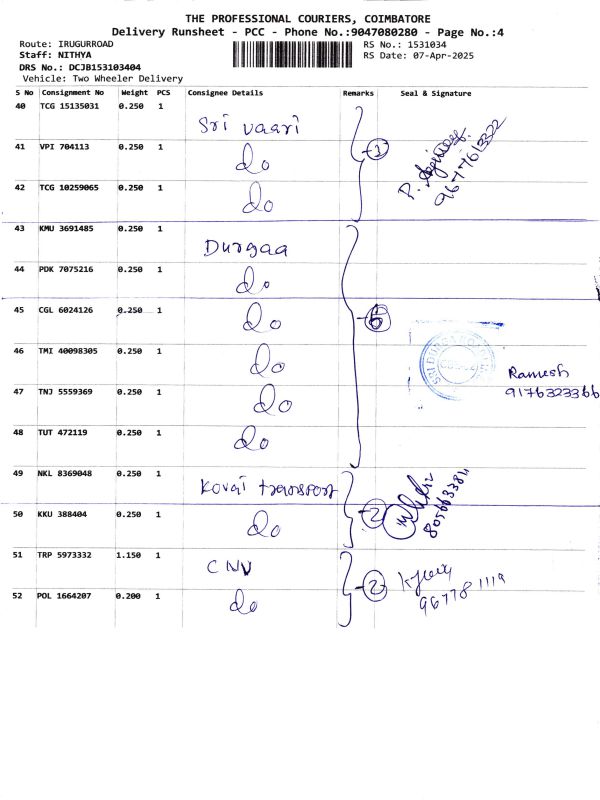 THE PROFESSIONAL COURIERS, COIMBATORE
Delivery Runsheet - PCC - Phone No.:9047080280 - Page No.:4
Route: IRUGURROAD RS No.: 1531034
Staff: NITHYA RS Date: 07-Apr-2025
DRS No.: DCJB153103404
Vehicle: Two Wheeler Delivery
S No Consignment No Weight PCS Consignee Details Remarks Seal & Signature
40 TCG 15135031 0.250 1 Sri vaari
41 VPI 704113 0.250 1 do 3 P. 9677613322
42 TCG 10259065 0.250 1 do
43 KMU 3691485 0.250 1 Durgaa
44 PDK 7075216 0.250 1 do
45 CGL 6024126 0.250 1 do 6
46 TMI 40098305 0.250 1 do Ramesh
47 TNJ 5559369 0.250 1 do 9176323366
48 TUT 472119 0.250 1 do
49 NKL 8369048 0.250 1 Kovai transport
50 KKU 388404 0.250 1 do 2
51 TRP 5973332 1.150 1 CNV 2
52 POL 1664207 0.200 1 do 967781119